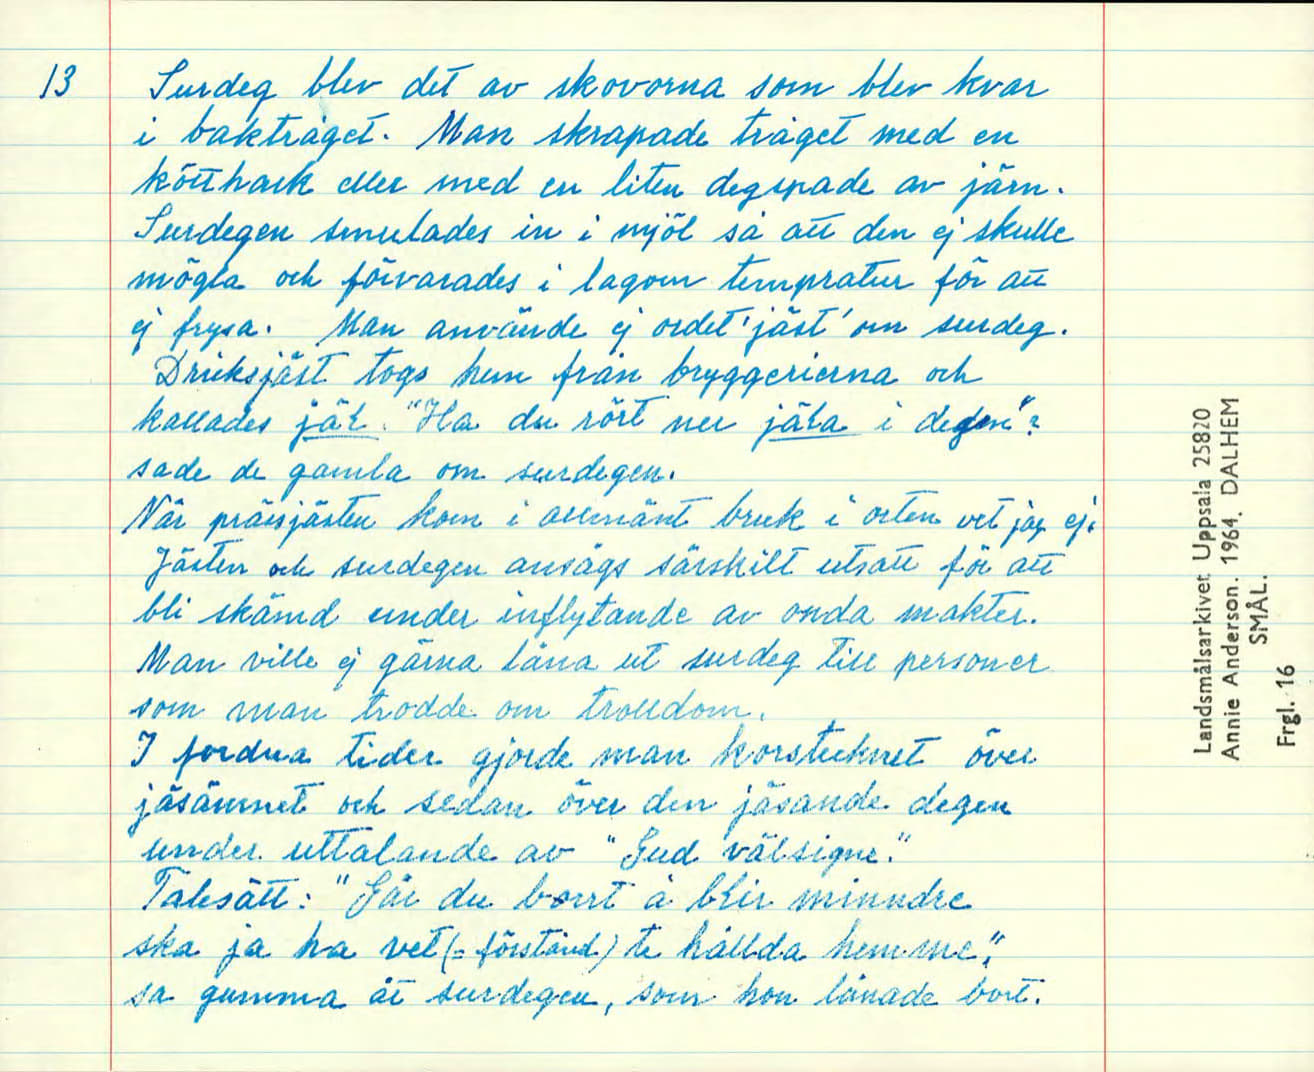 13
Surdeg blev det av skovorna som blev kvar
i baktråget. Man skrapade tråget med en
kötthack eller med en liten degspade av järn.
Surdegen smulades in i mjöl så att den ej skulle
mögla och förvarades i lagom tempratur för att
ej frysa. Man använde ej ordet 'jäst' om surdeg.
Dricksjäst togs hem från bryggerierna och
kallades jäk. "Ha du rört ner jäka i degen"?
sade de gamla om surdegen.
När prässjästen kom i allmänt bruk i orten vet jag ej.
Jästen och surdegen ansågs särskilt utsatt för att
bli skämd under inflytande av onda makter.
Man ville ej gärna låna ut surdeg till personer
som man trodde om trolldom.
I fordna tider gjorde man korstecknet över
jäsämnet och sedan över den jäsande degen
under uttalande av "Gud välsigne."
Talesätt: "Går du borrt å blir minndre
ska ja ha vet (= förstånd) te hållda hemme",
sa gumma åt surdegen, som hon lånade bort.
Landsmålsarkivet Uppsala 25820
Annie Anderson. 1964. DALHEM
SMÅL.
Frgl. 16